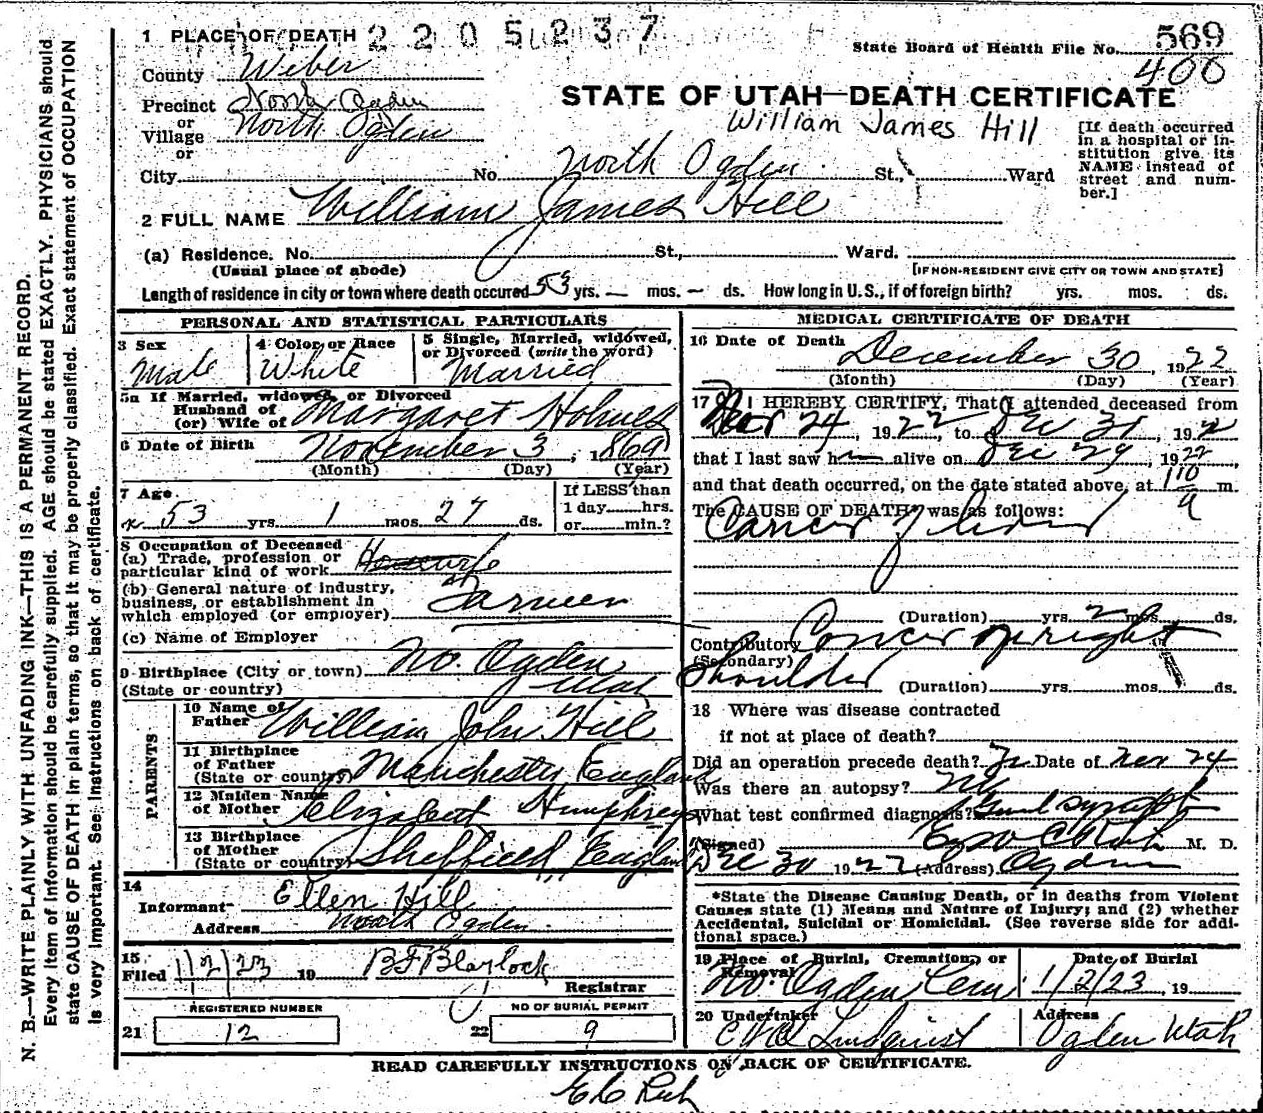 1 PLACE OF DEATH 2205237
State Board of Health File No. 569
400
County Weber
Precinct North Ogden
or
Village North Ogden
or
STATE OF UTAH—DEATH CERTIFICATE
William James Hill
[If death occurred in a hospital or institution give its NAME instead of street and number.]
City No. North Ogden St., Ward
2 FULL NAME William James Hill
(a) Residence. No. St., Ward.
(Usual place of abode) [IF NON-RESIDENT GIVE CITY OR TOWN AND STATE]
Length of residence in city or town where death occured 53 yrs. — mos. — ds. How long in U. S., if of foreign birth? yrs. mos. ds.
PERSONAL AND STATISTICAL PARTICULARS
3 Sex
Male
4 Color or Race
White
5 Single, Married, widowed, or Divorced (write the word)
Married
5a If Married, widowed, or Divorced
Husband of
(or) Wife of Margaret Holmes
6 Date of Birth November 3, 1869
(Month) (Day) (Year)
7 Age
53 yrs. 1 mos. 27 ds.
If LESS than
1 day hrs.
or min.?
8 Occupation of Deceased
(a) Trade, profession or
particular kind of work
(b) General nature of industry,
business, or establishment in
which employed (or employer) Farmer
(c) Name of Employer
9 Birthplace (City or town) No. Ogden
(State or country) Utah
PARENTS
10 Name of Father William John Hill
11 Birthplace of Father
(State or country) Manchester England
12 Maiden Name of Mother Elizabeth Humphreys
13 Birthplace of Mother
(State or country) Sheffield, England
14
Informant Ellen Hill
Address North Ogden
15
Filed 1/2/23 19 B F Blaylock
Registrar
REGISTERED NUMBER
21 12
NO OF BURIAL PERMIT
22 9
MEDICAL CERTIFICATE OF DEATH
16 Date of Death
December 30, 1922
(Month) (Day) (Year)
17 I HEREBY CERTIFY, That I attended deceased from
24, 1922, to Dec 30, 192
that I last saw h alive on Dec 29, 1922,
and that death occurred, on the date stated above, at 1 10 a m
The CAUSE OF DEATH* was as follows:
Cancer of
(Duration) yrs. 2 mos. ds.
Contributory Cancer of right
(Secondary)
Shoulder (Duration) yrs. mos. ds.
18 Where was disease contracted
if not at place of death?
Did an operation precede death? Date of Nov 24
Was there an autopsy? No
What test confirmed diagnosis?
(Signed) M. D.
Dec 30 1922 (Address) Ogden
*State the Disease Causing Death, or in deaths from Violent Causes state (1) Means and Nature of Injury; and (2) whether Accidental, Suicidal or Homicidal. (See reverse side for additional space.)
19 Place of Burial, Cremation, or Removal
No. Ogden Cem
Date of Burial
1/2/23, 19
20 Undertaker
Lindquist
Address
Ogden Utah
READ CAREFULLY INSTRUCTIONS ON BACK OF CERTIFICATE.
N. B.—WRITE PLAINLY WITH UNFADING INK—THIS IS A PERMANENT RECORD.
Every item of information should be carefully supplied. AGE should be stated EXACTLY. PHYSICIANS should
state CAUSE OF DEATH in plain terms, so that it may be properly classified. Exact statement of OCCUPATION
is very important. See Instructions on back of certificate.